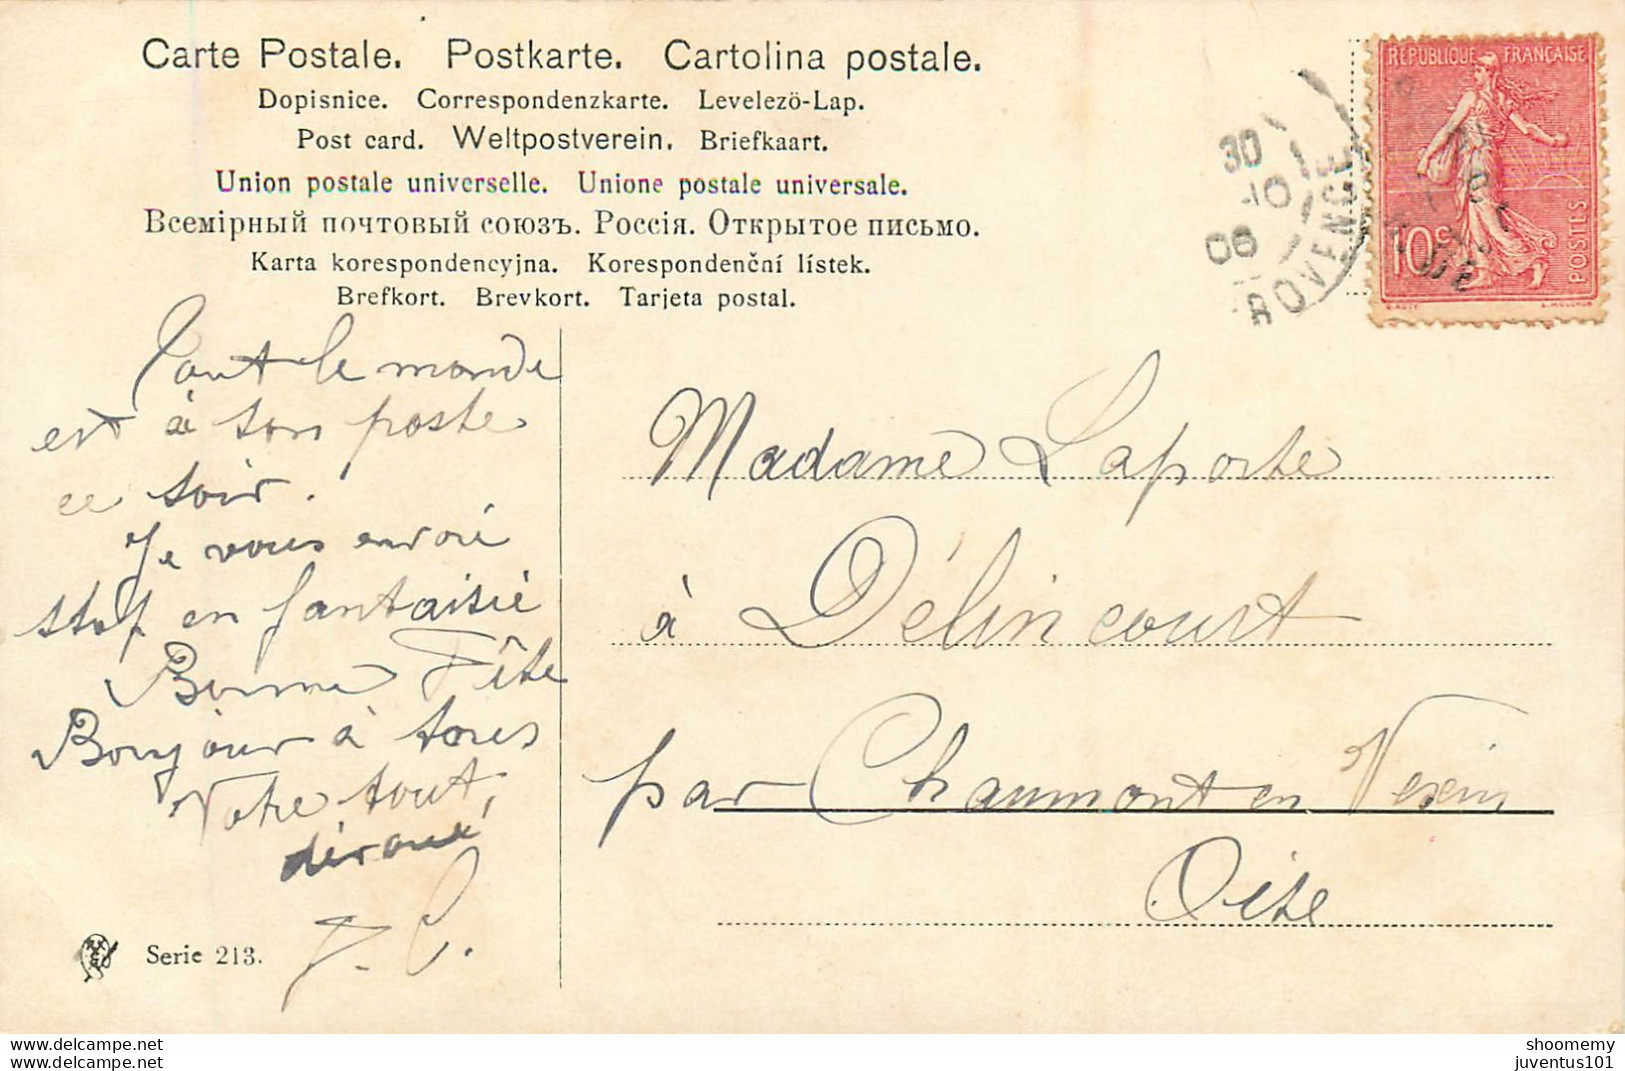 Carte Postale. Postkarte. Cartolina postale.
Dopisnice. Correspondenzkarte. Levelezö-Lap.
Post card. Weltpostverein. Briefkaart.
Union postale universelle. Unione postale universale.
Всемірный почтовый союзъ. Россія. Открытое письмо.
Karta korespondencyjna. Korespondenční lístek.
Brefkort. Brevkort. Tarjeta postal.
RÉPUBLIQUE FRANÇAISE
10c POSTES
30
-10
06
ROVENCE
Tout le monde
est à son poste
ce soir.
Je vous envoie
en fantaisie
Bonne Fête
Bonjour à tous
Votre tout,
dévoué
F. C.
Serie 213.
Madame Laporte
à Délincourt
par Chaumont en Vexin
Oise
www.delcampe.net
online
www.delcampe.net
online
shoomemy
juventus101